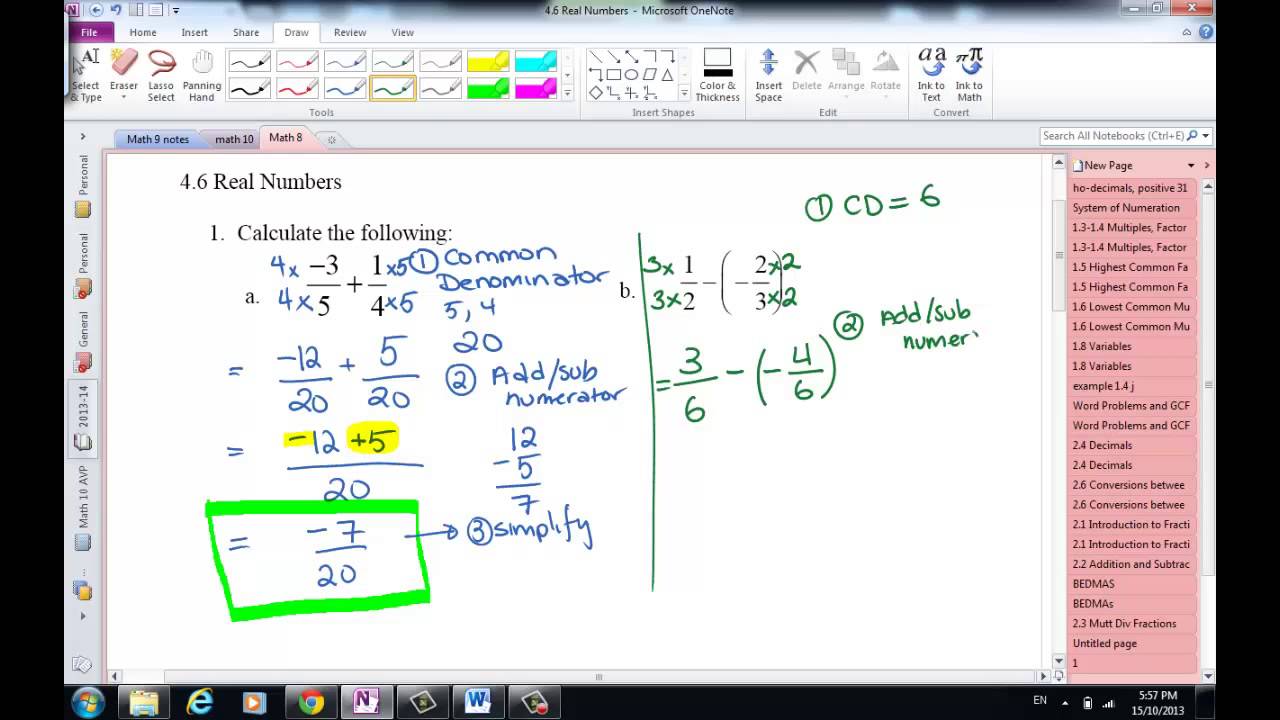 4.6 Real Numbers - Microsoft OneNote
File Home Insert Share Draw Review View
Select & Type
Eraser
Lasso Select
Panning Hand
Color & Thickness
Insert Space
Delete
Arrange
Rotate
Ink to Text
Ink to Math
Tools
Insert Shapes
Edit
Convert
Math 9 notes
math 10
Math 8
Search All Notebooks (Ctrl+E)
Personal
Personal
General
2013-14
Math 10 AVP
4.6 Real Numbers
1. Calculate the following:
a.
4 x -3/5 + 1/4 x5
4 x x5
① Common
Denominator
5, 4
20
= -12/20 + 5/20
② Add/sub
numerator
= -12 +5
20
12
- 5
7
= -7/20
→ ③ simplify
① CD = 6
b.
3x 1/2 - (- 2/3) x2
3x x2
= 3/6 - (- 4/6)
② Add/sub
numer
New Page
ho-decimals, positive 31
System of Numeration
1.3-1.4 Multiples, Factor
1.3-1.4 Multiples, Factor
1.5 Highest Common Fa
1.5 Highest Common Fa
1.6 Lowest Common Mu
1.6 Lowest Common Mu
1.8 Variables
1.8 Variables
example 1.4 j
Word Problems and GCF
Word Problems and GCF
2.4 Decimals
2.4 Decimals
2.6 Conversions betwee
2.6 Conversions betwee
2.1 Introduction to Fracti
2.1 Introduction to Fracti
2.2 Addition and Subtrac
BEDMAS
BEDMAs
2.3 Mutt Div Fractions
Untitled page
1
EN
5:57 PM
15/10/2013